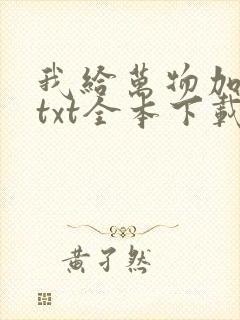 我給萬物加
txt全本下載
黃孑然